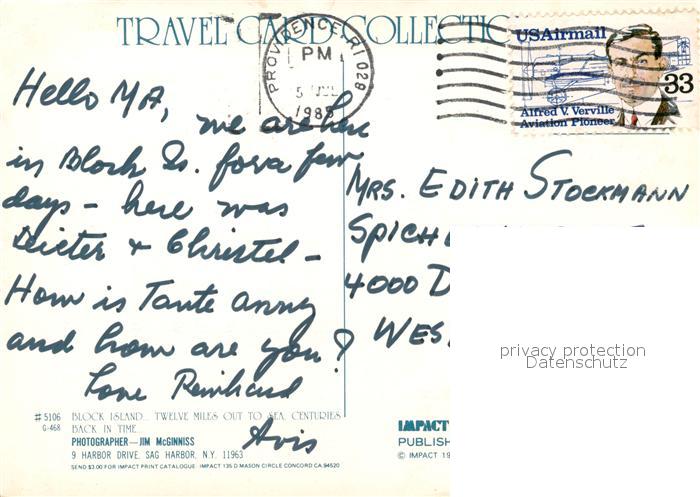 TRAVEL CARD COLLECTIO
PROVIDENCE, RI 028
PM
5
1985
USAirmail
33
Alfred V. Verville
Aviation Pioneer
Hello MA,
we are here
in Block Is. for a few
days - here was
Dieter & Christel -
How is Tante Anny
and how are you?
Love Reinhard
Avis
MRS. EDITH STOCKMANN
SPICH
4000 D
WES
privacy protection
Datenschutz
#5106 BLOCK ISLAND... TWELVE MILES OUT TO SEA, CENTURIES
G-468 BACK IN TIME...
PHOTOGRAPHER—JIM McGINNISS
9 HARBOR DRIVE, SAG HARBOR, N.Y. 11963
SEND $3.00 FOR IMPACT PRINT CATALOGUE IMPACT 135 D MASON CIRCLE CONCORD CA. 94520
IMPACT
PUBLISH
© IMPACT 19